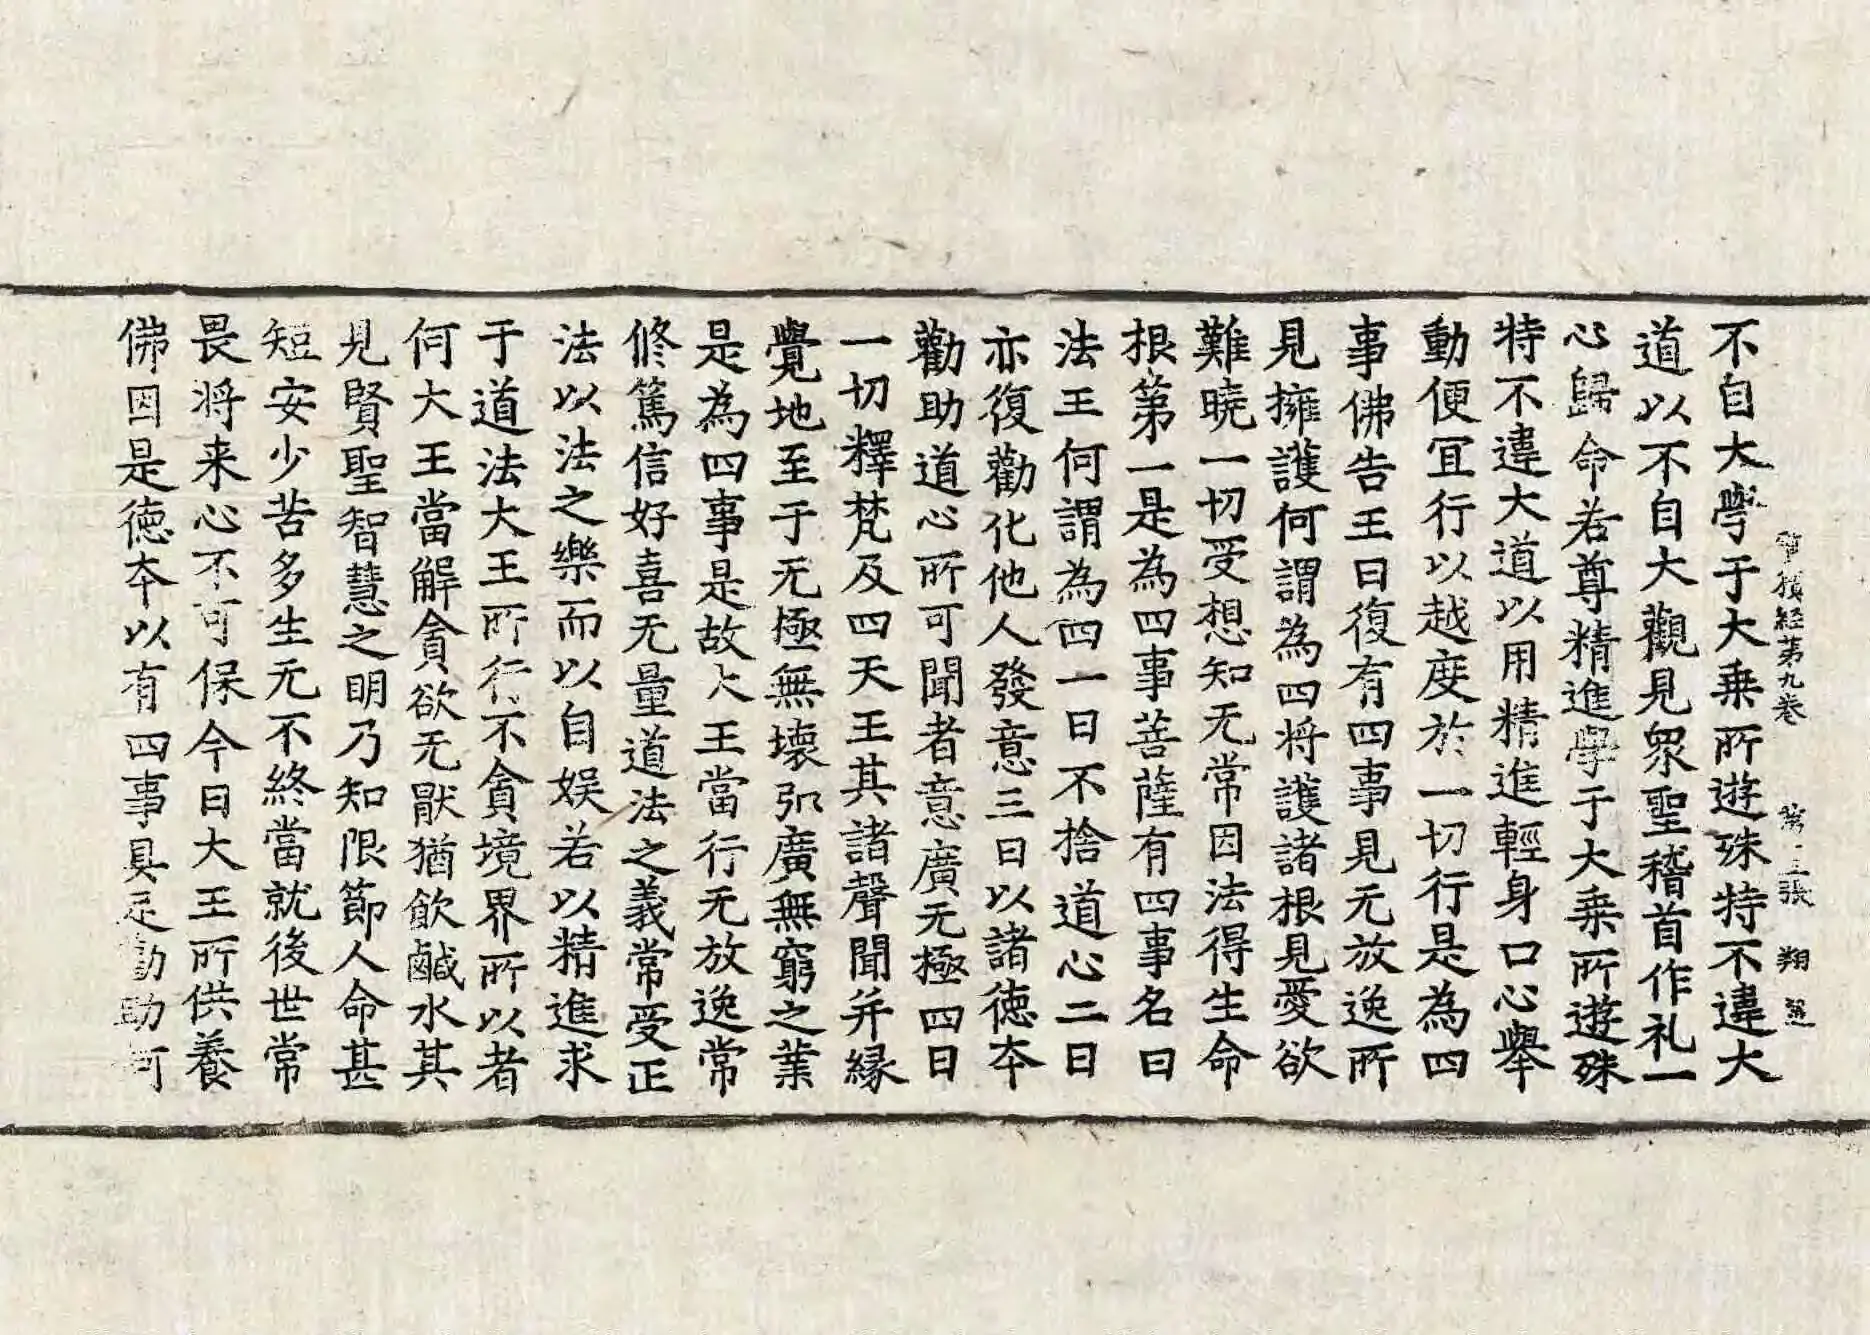 積経苐九卷 張 翔
不自大學于大乗所遊殊特不違大
道以不自大觀見衆聖稽首作礼一
心歸命若尊精進學于大乗所遊殊
特不違大道以用精進輕身口心舉
動便冝行以越度於一切行是為四
事佛告王曰復有四事見无放逸所
見擁護何謂為四將護諸根見愛欲
難曉一切受想知无常因法得生命
根第一是為四事菩薩有四事名曰
法王何謂為四一曰不捨道心二曰
亦復勸化他人發意三曰以諸徳本
勸助道心所可聞者意廣无極四曰
一切釋梵及四天王其諸聲聞并縁
覺地至于无極無壞弘廣無窮之業
是為四事是故大王當行无放逸常
修篤信好喜无量道法之義常受正
法以法之樂而以自娱若以精進求
于道法大王所行不貪境界所以者
何大王當解貪欲无猒猶飲鹹水其
見賢聖智慧之明乃知限節人命甚
短安少苦多生无不終當就後世常
畏將来心不可保今日大王所供養
佛因是徳本以有四事具足勸助何